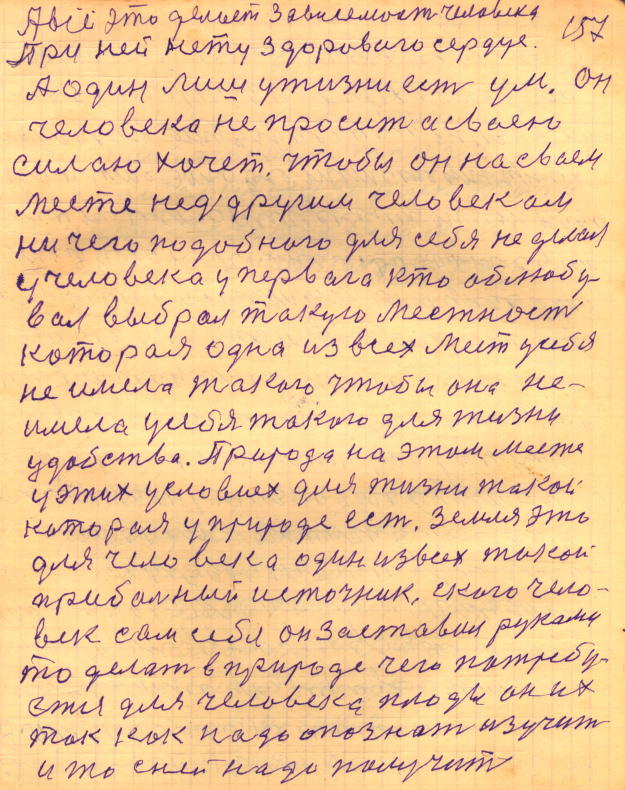 Авсё это делает зависемост человека
157
При ней нету здороваго сердце.
Аодин лиш ужизни ест ум. он
человека не просит асваею
силаю хочет, чтобы он насваем
месте над другим человекам
ни чего подобного для себя не делал
учеловека упервага кто облюбу-
вал выбрал такую местност
которая одна извсех мест усебя
не имела такого чтобы она не-
имела усебя такого для жизни
удобства. Природа на этом месте
уэтих условиех для жизни такой
которая уприроде ест. Земля это
для человека один извсех такой
прибалный источник, ского чело-
век сам себя он заставил руками
то делат вприроде чего потребу-
ется для человека, плоды он их
так как надо опознат изучит
и то сней надо получит